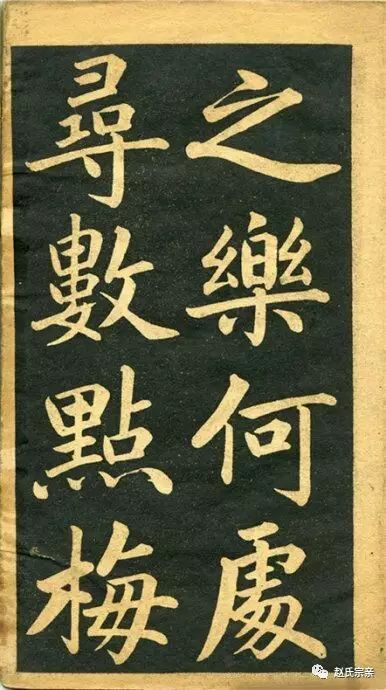 之樂何處
尋數點梅
赵氏宗亲